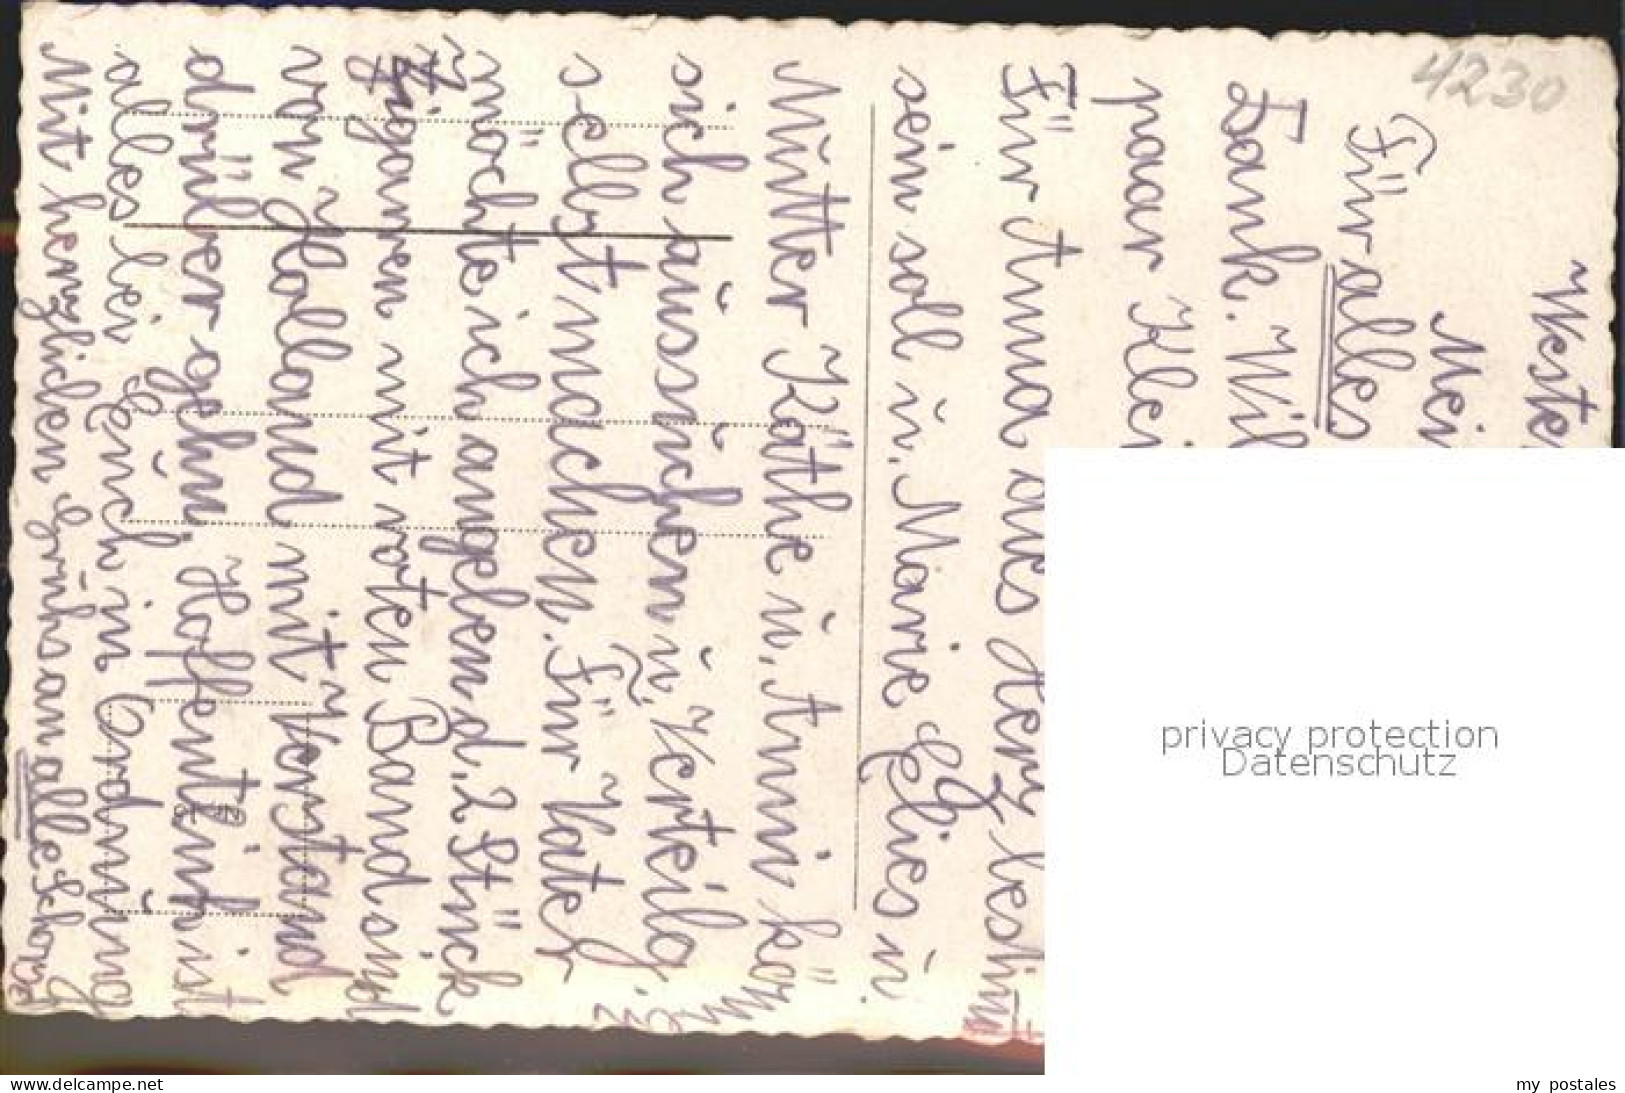 4230
Weste
Mei
Für alles
Dank. Wil
paar Klei
Für Anna das Herz bestimmt
sein soll u. Marie Elies u.
Mutter Käthe u. Anni können
sich aussuchen u. Verteilg.
selbst machen. Für Vater
möchte ich angeben d. 2 Stück
Zigarren mit roten Band sind
von Holland mit Verstand
drüber gehn. Hoffentlich ist
alles bei Euch in Ordnung
Mit herzlichen Gruhs an alle
privacy protection
Datenschutz
www.delcampe.net
my postales